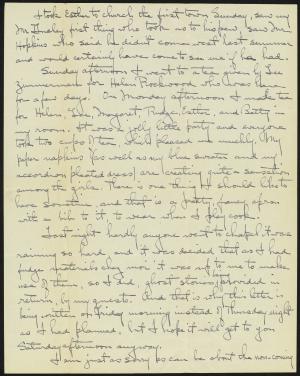 I took Esther to church the first town Sunday, saw my
first thing who took us to his pew, saw Mr.
Hopkins who said he didn't come west last summer
and would certainly have come to see me if he had.
Sunday afternoon I went to a tea given by
Zimmerman for Helen Rockwood who was here
for a few days. On Monday afternoon I made tea
for Helen, Margaret, Esther, and Betty in
my room. It was a jolly little party and everyone
took two cups of tea, which pleased me muchly. My
paper napkins (as well as my blue sweater and my
accordion pleated dress) are creating quite a sensation
among the girls. There is one thing I should like to
have sometime, and that is a fancy apron
with a bib to it, to wear when I play cook.
Last night hardly anyone went to chapel, it was
raining so hard, and it was decided that as I had
fudge materials chez moi, it was up to me to make
use of them, so I did, ghost stories provided in
return, by my guests. And that is why this letter is
being written on Friday morning instead of Thursday night
as I had planned, but I hope it will get to you
Saturday afternoon anyway.
I am just as sorry as can be about the non-coming